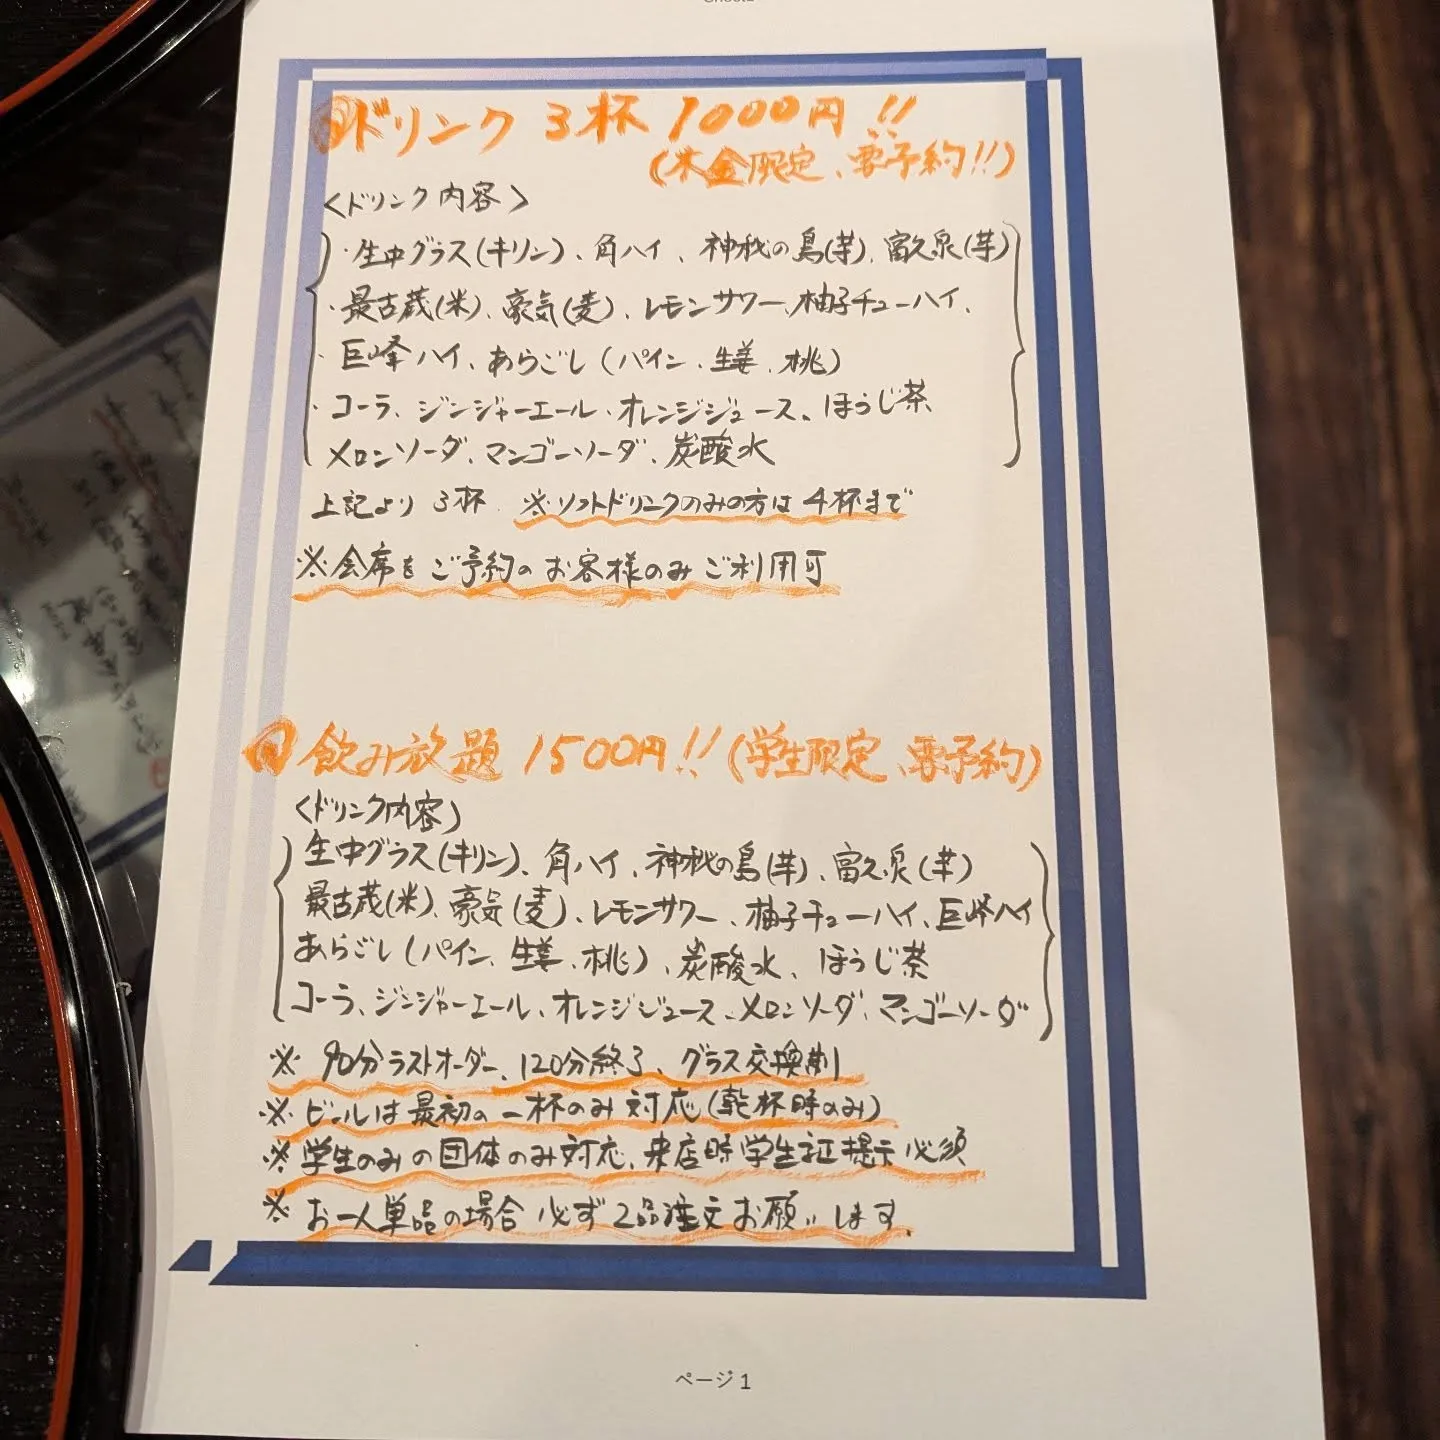 ドリンク 3杯 1000円!!
(木金限定、要予約!!)
<ドリンク内容>
・生中グラス(キリン)、角ハイ、神秘の島(芋)、富久泉(芋)
・最古蔵(米)、豪気(麦)、レモンサワー、柚子チューハイ、
・巨峰ハイ、あらごし(パイン、生姜、桃)
・コーラ、ジンジャーエール、オレンジジュース、ほうじ茶
メロンソーダ、マンゴーソーダ、炭酸水
上記より 3杯 ※ソフトドリンクのみの方は4杯まで
※会席をご予約のお客様のみご利用可
飲み放題 1500円!!(学生限定、要予約)
<ドリンク内容>
生中グラス(キリン)、角ハイ、神秘の島(芋)、富久泉(芋)
最古蔵(米)、豪気(麦)、レモンサワー、柚子チューハイ、巨峰ハイ
あらごし(パイン、生姜、桃)、炭酸水、ほうじ茶
コーラ、ジンジャーエール、オレンジジュース、メロンソーダ、マンゴーソーダ
※ 90分ラストオーダー、120分終了、グラス交換制
※ ビールは最初の一杯のみ対応(乾杯時のみ)
※ 学生のみの団体のみ対応、来店時学生証提示必須
※ お一人単品の場合必ず2品注文お願いします。
ページ 1